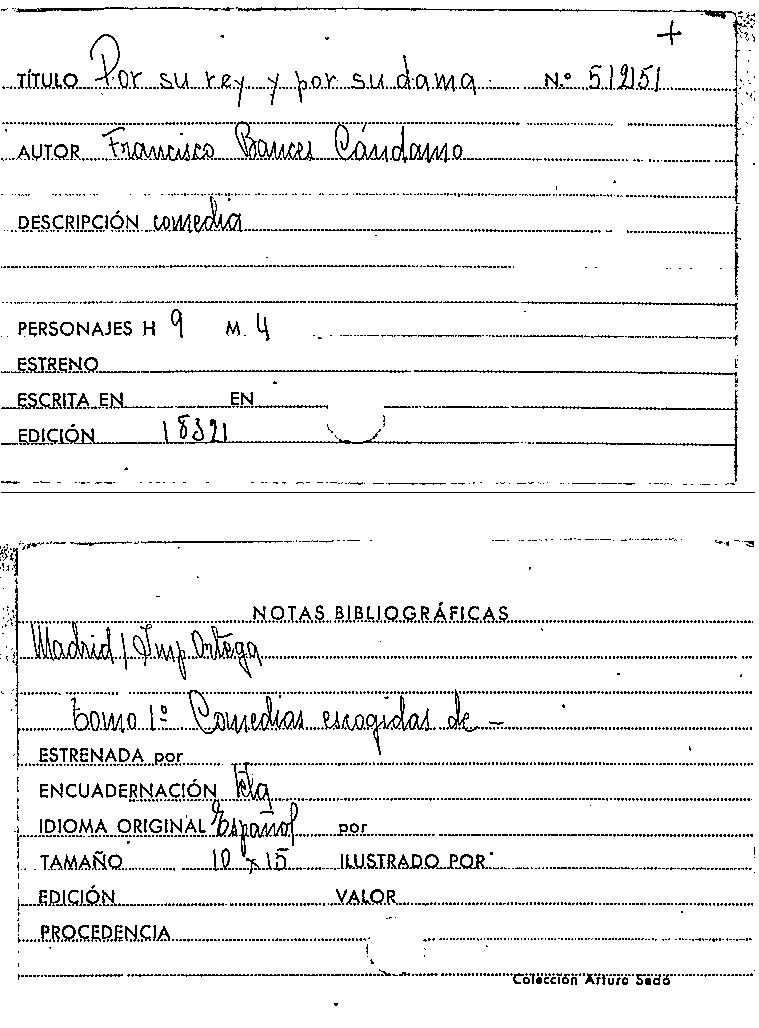 +
TÍTULO Por su rey y por su dama N.º 5/2151
AUTOR Francisco Bances Cándamo
DESCRIPCIÓN comedia
PERSONAJES H 9 M. 4
ESTRENO
ESCRITA EN EN
EDICIÓN 1832
NOTAS BIBLIOGRÁFICAS
Madrid / Imp Ortega
tomo 1º Comedias escogidas de —
ESTRENADA por
ENCUADERNACIÓN tela
IDIOMA ORIGINAL Español por
TAMAÑO 10 x 15 ILUSTRADO POR
EDICIÓN VALOR
PROCEDENCIA
Colección Arturo Sedó